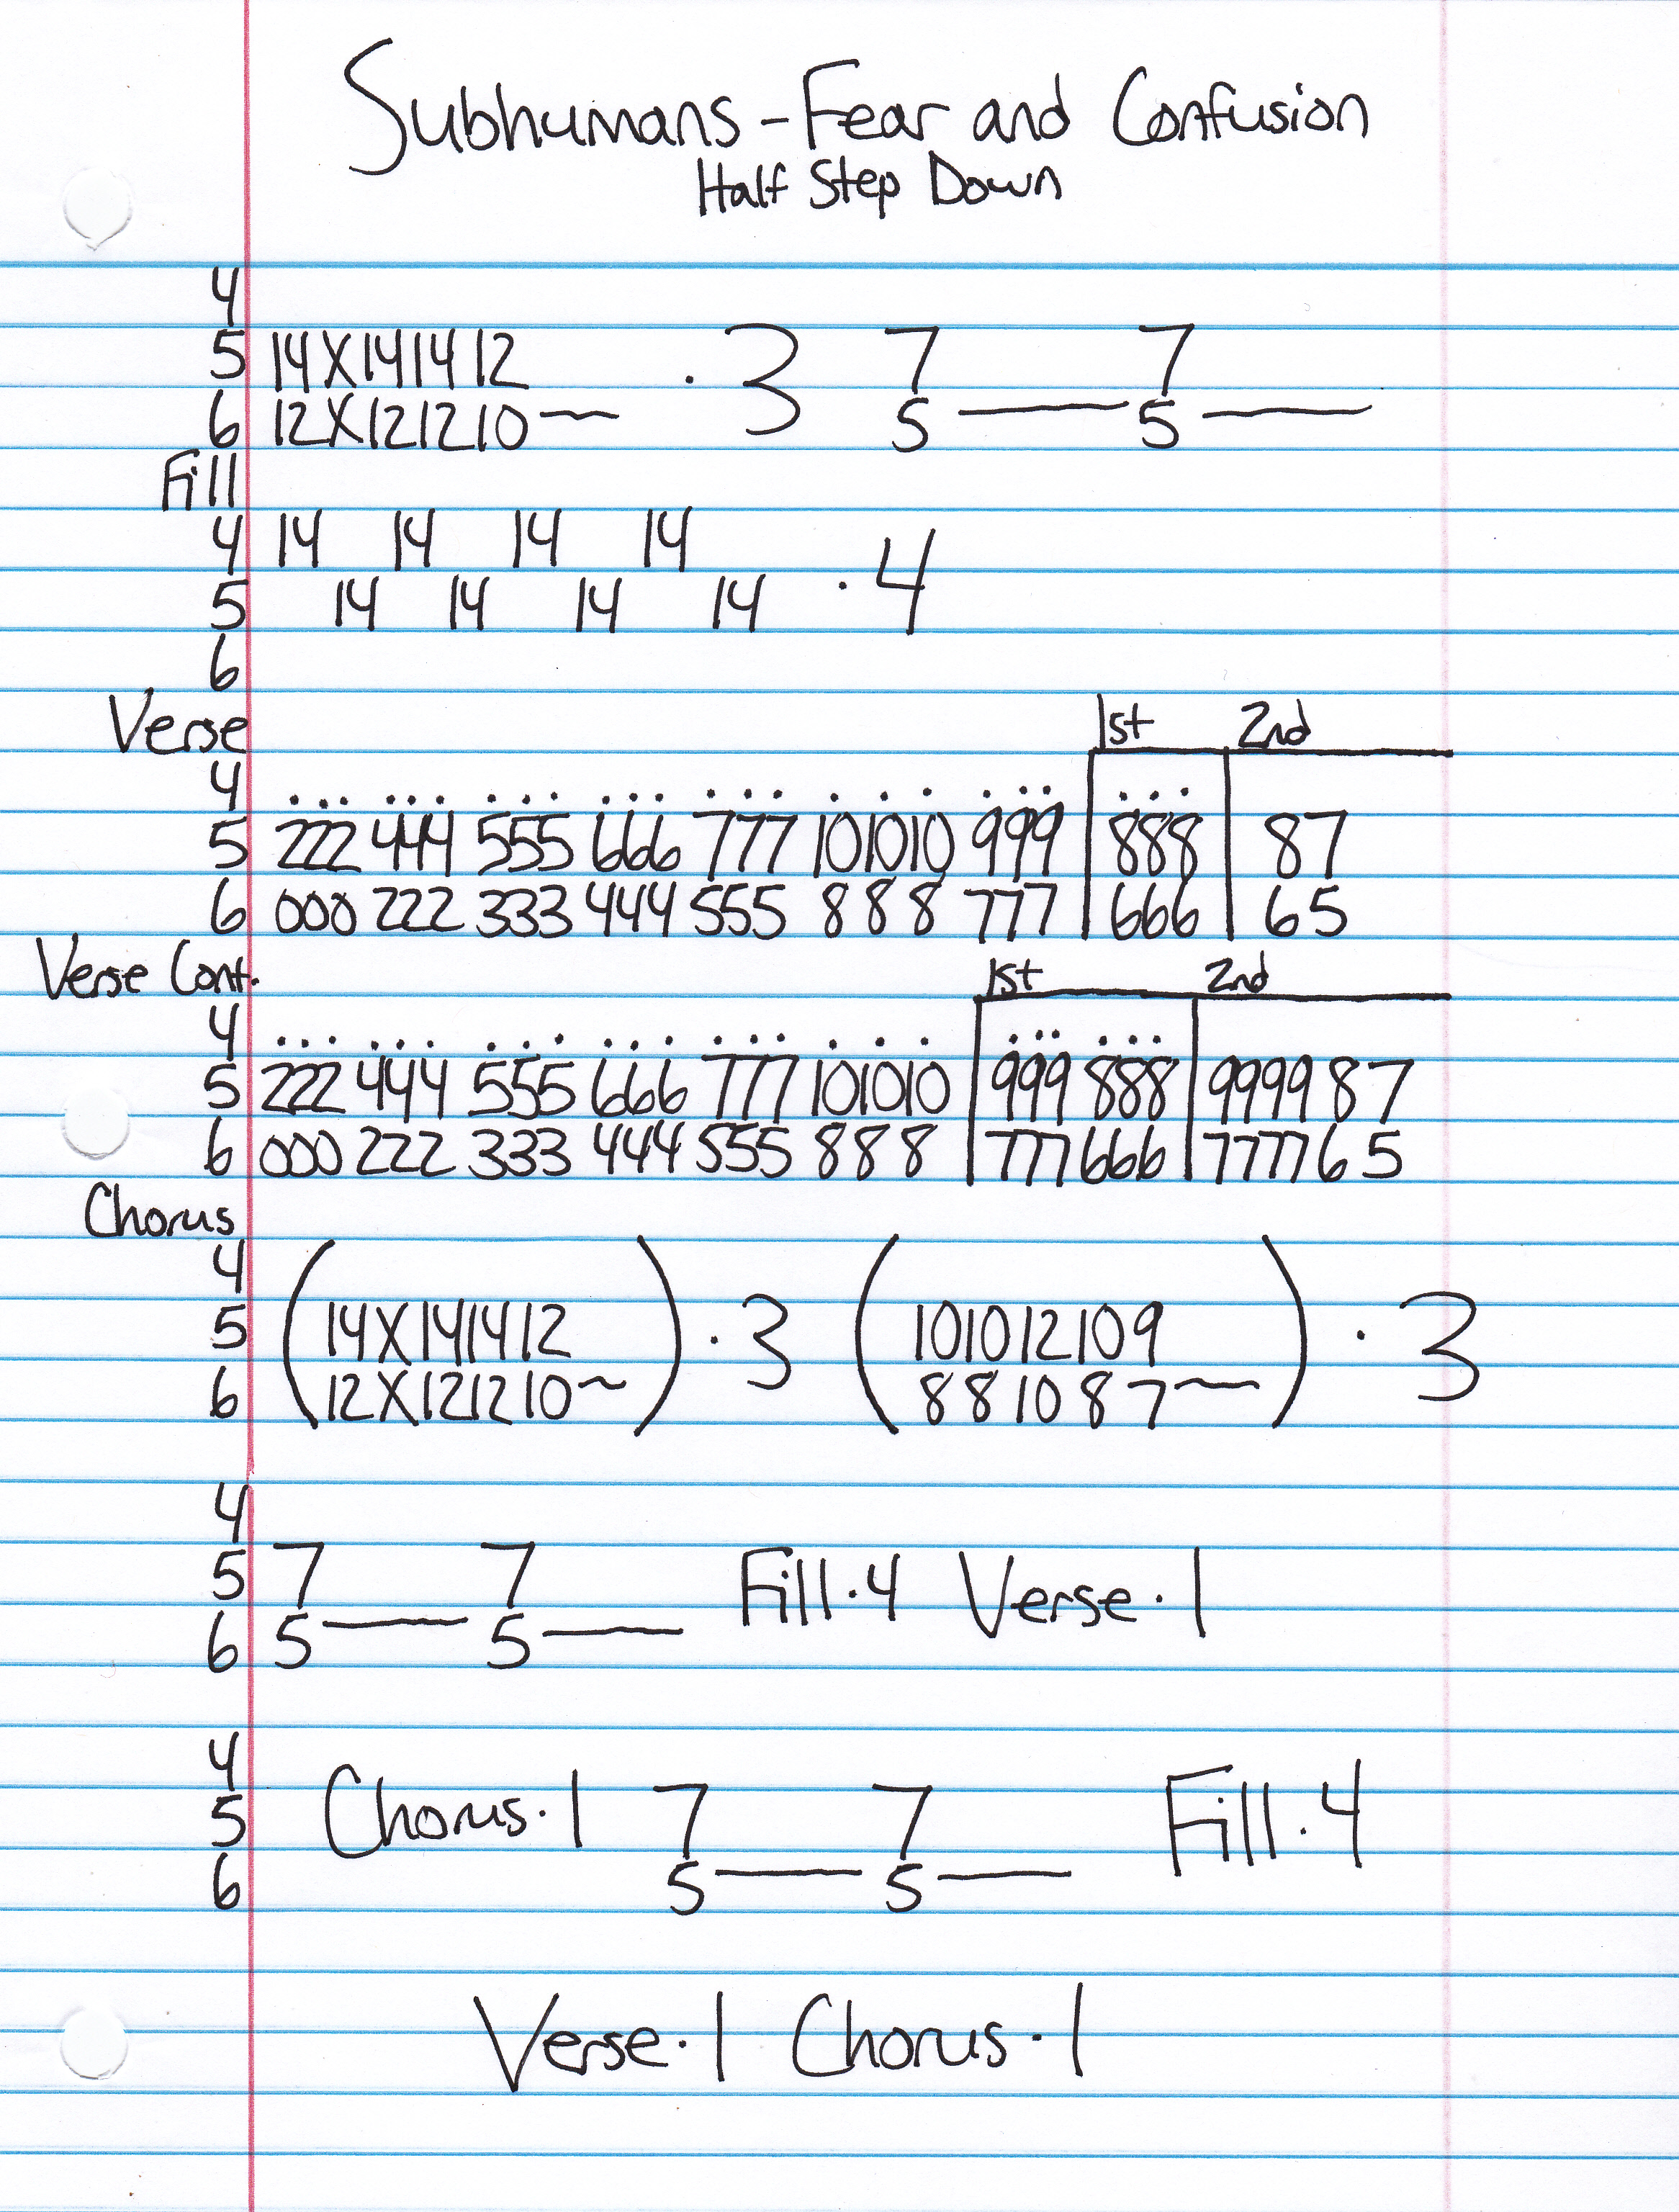 Subhumans - Fear and Confusion
Half Step Down
4
5 14X141412 · 3 7 7
6 12X121210~ 5 — 5 —
Fill
4 14 14 14 14 · 4
5 14 14 14 14
6
Verse 1st 2nd
4 ... ... ... ... ... ... ... ...
5 222 444 555 666 777 101010 999 888 87
6 000 222 333 444 555 8 8 8 777 666 65
Verse Cont. 1st 2nd
4 ... ... ... ... ... ... ... ...
5 222 444 555 666 777 101010 999 888 9999 8 7
6 000 222 333 444 555 8 8 8 777 666 7777 6 5
Chorus
4
5 (14X141412) · 3 (101012109) · 3
6 12X121210~ 8 8 10 8 7~
4
5 7 7 Fill · 4 Verse · 1
6 5 — 5 —
4
5 Chorus · 1 7 7 Fill · 4
6 5 — 5 —
Verse · 1 Chorus · 1